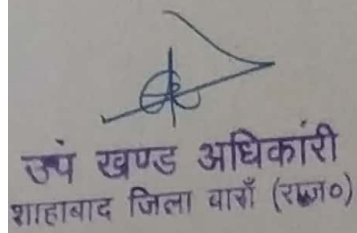 उप खण्ड अधिकारी
शाहाबाद जिला वाराँ (राज०)